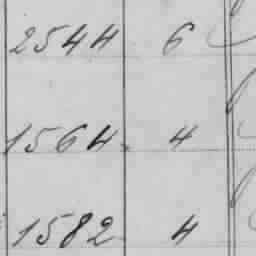 2544 6
1564 4
1582 4